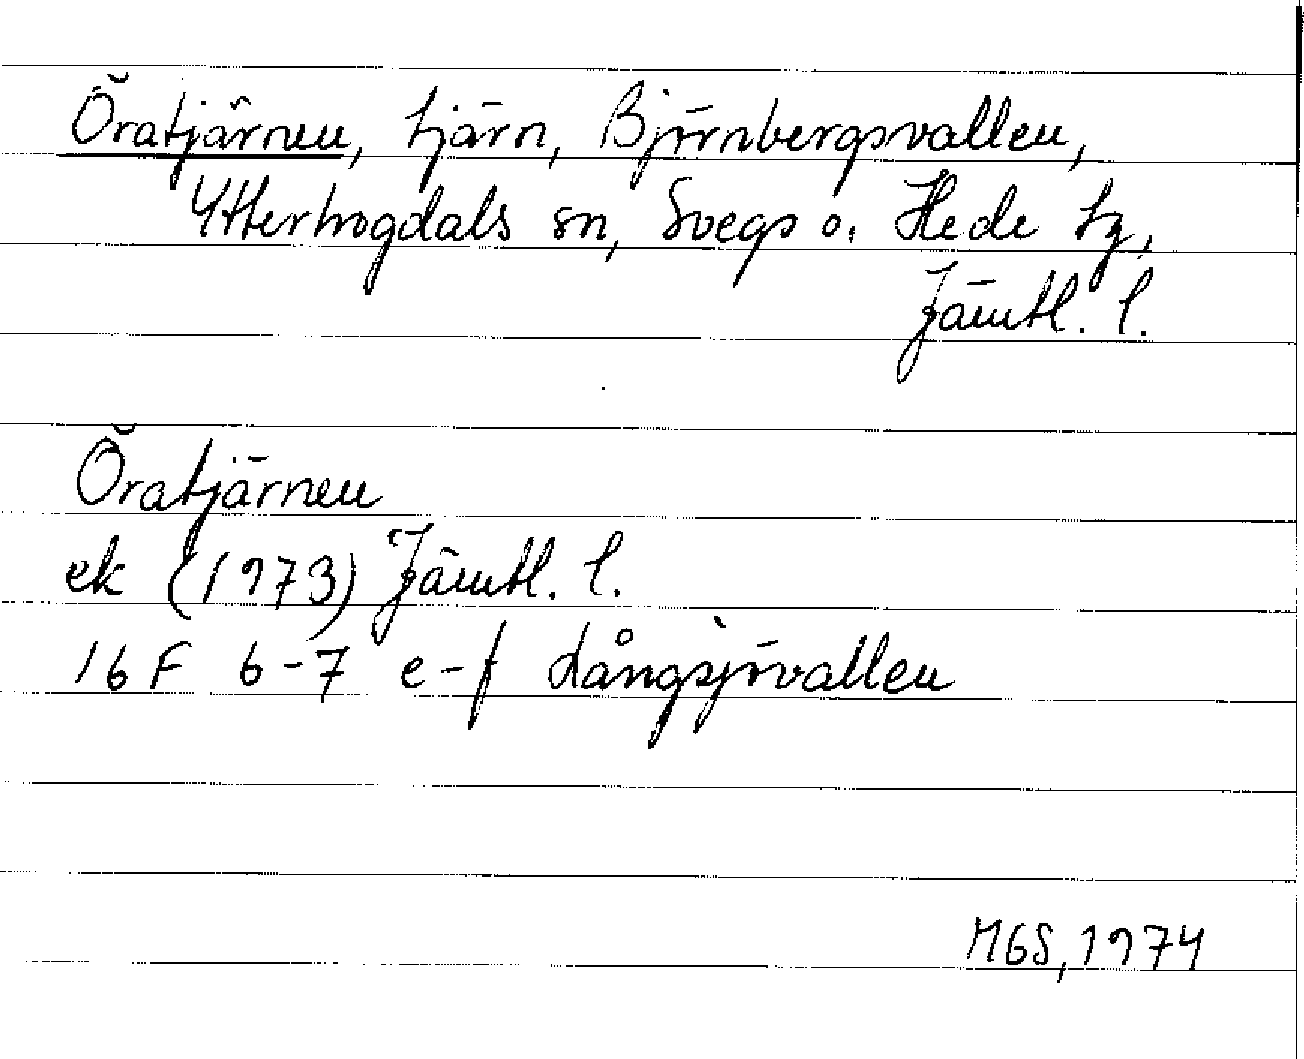 Öratjärnen, tjärn, Björnbergsvallen,
Ytterhogdals sn, Svegs o. Hede tg,
Jämtl. l.
Öratjärnen
ek (1973) Jämtl. l.
16 F 6-7 e-f Långsjövallen
MGS, 1974